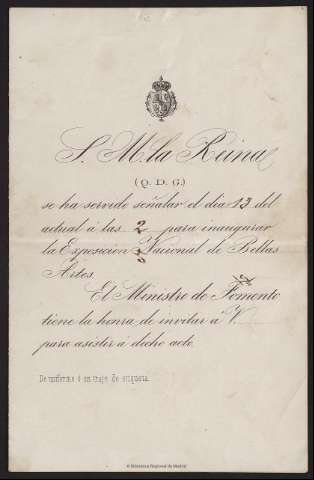 S. M. la Reina
(Q. D. G.)
se ha servido señalar el día 13 del
actual á las 2 para inaugurar
la Exposición Nacional de Bellas
Artes.
El Ministro de Fomento
tiene la honra de invitar á V.
para asistir á dicho acto.
De uniforme ó en traje de etiqueta.
© Biblioteca Regional de Madrid